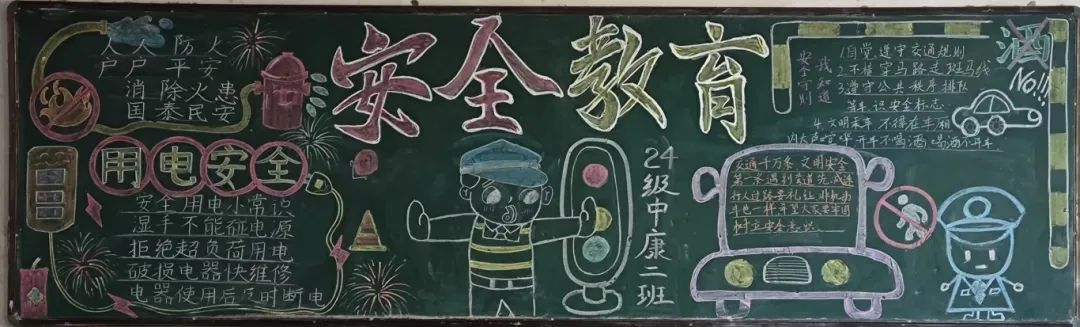 人人防火
户户平安
消除火患
国泰民安
用电安全
安全用电小常识
湿手不能碰电源
拒绝超负荷用电
破损电器快维修
电器使用后及时断电
安全教育
24级中康二班
安全守则
我知道
1自觉遵守交通规则
2.不横穿马路走斑马线
3遵守公共秩序排队
等车识安全标志
4.文明乘车不得在车厢
内大声喧哗开车不喝酒喝酒不开车
酒
No!!!
交通千万条文明安全
第一条遇到
行人过路要礼让非机动
车也一样希望大家要牢固
树立安全意识